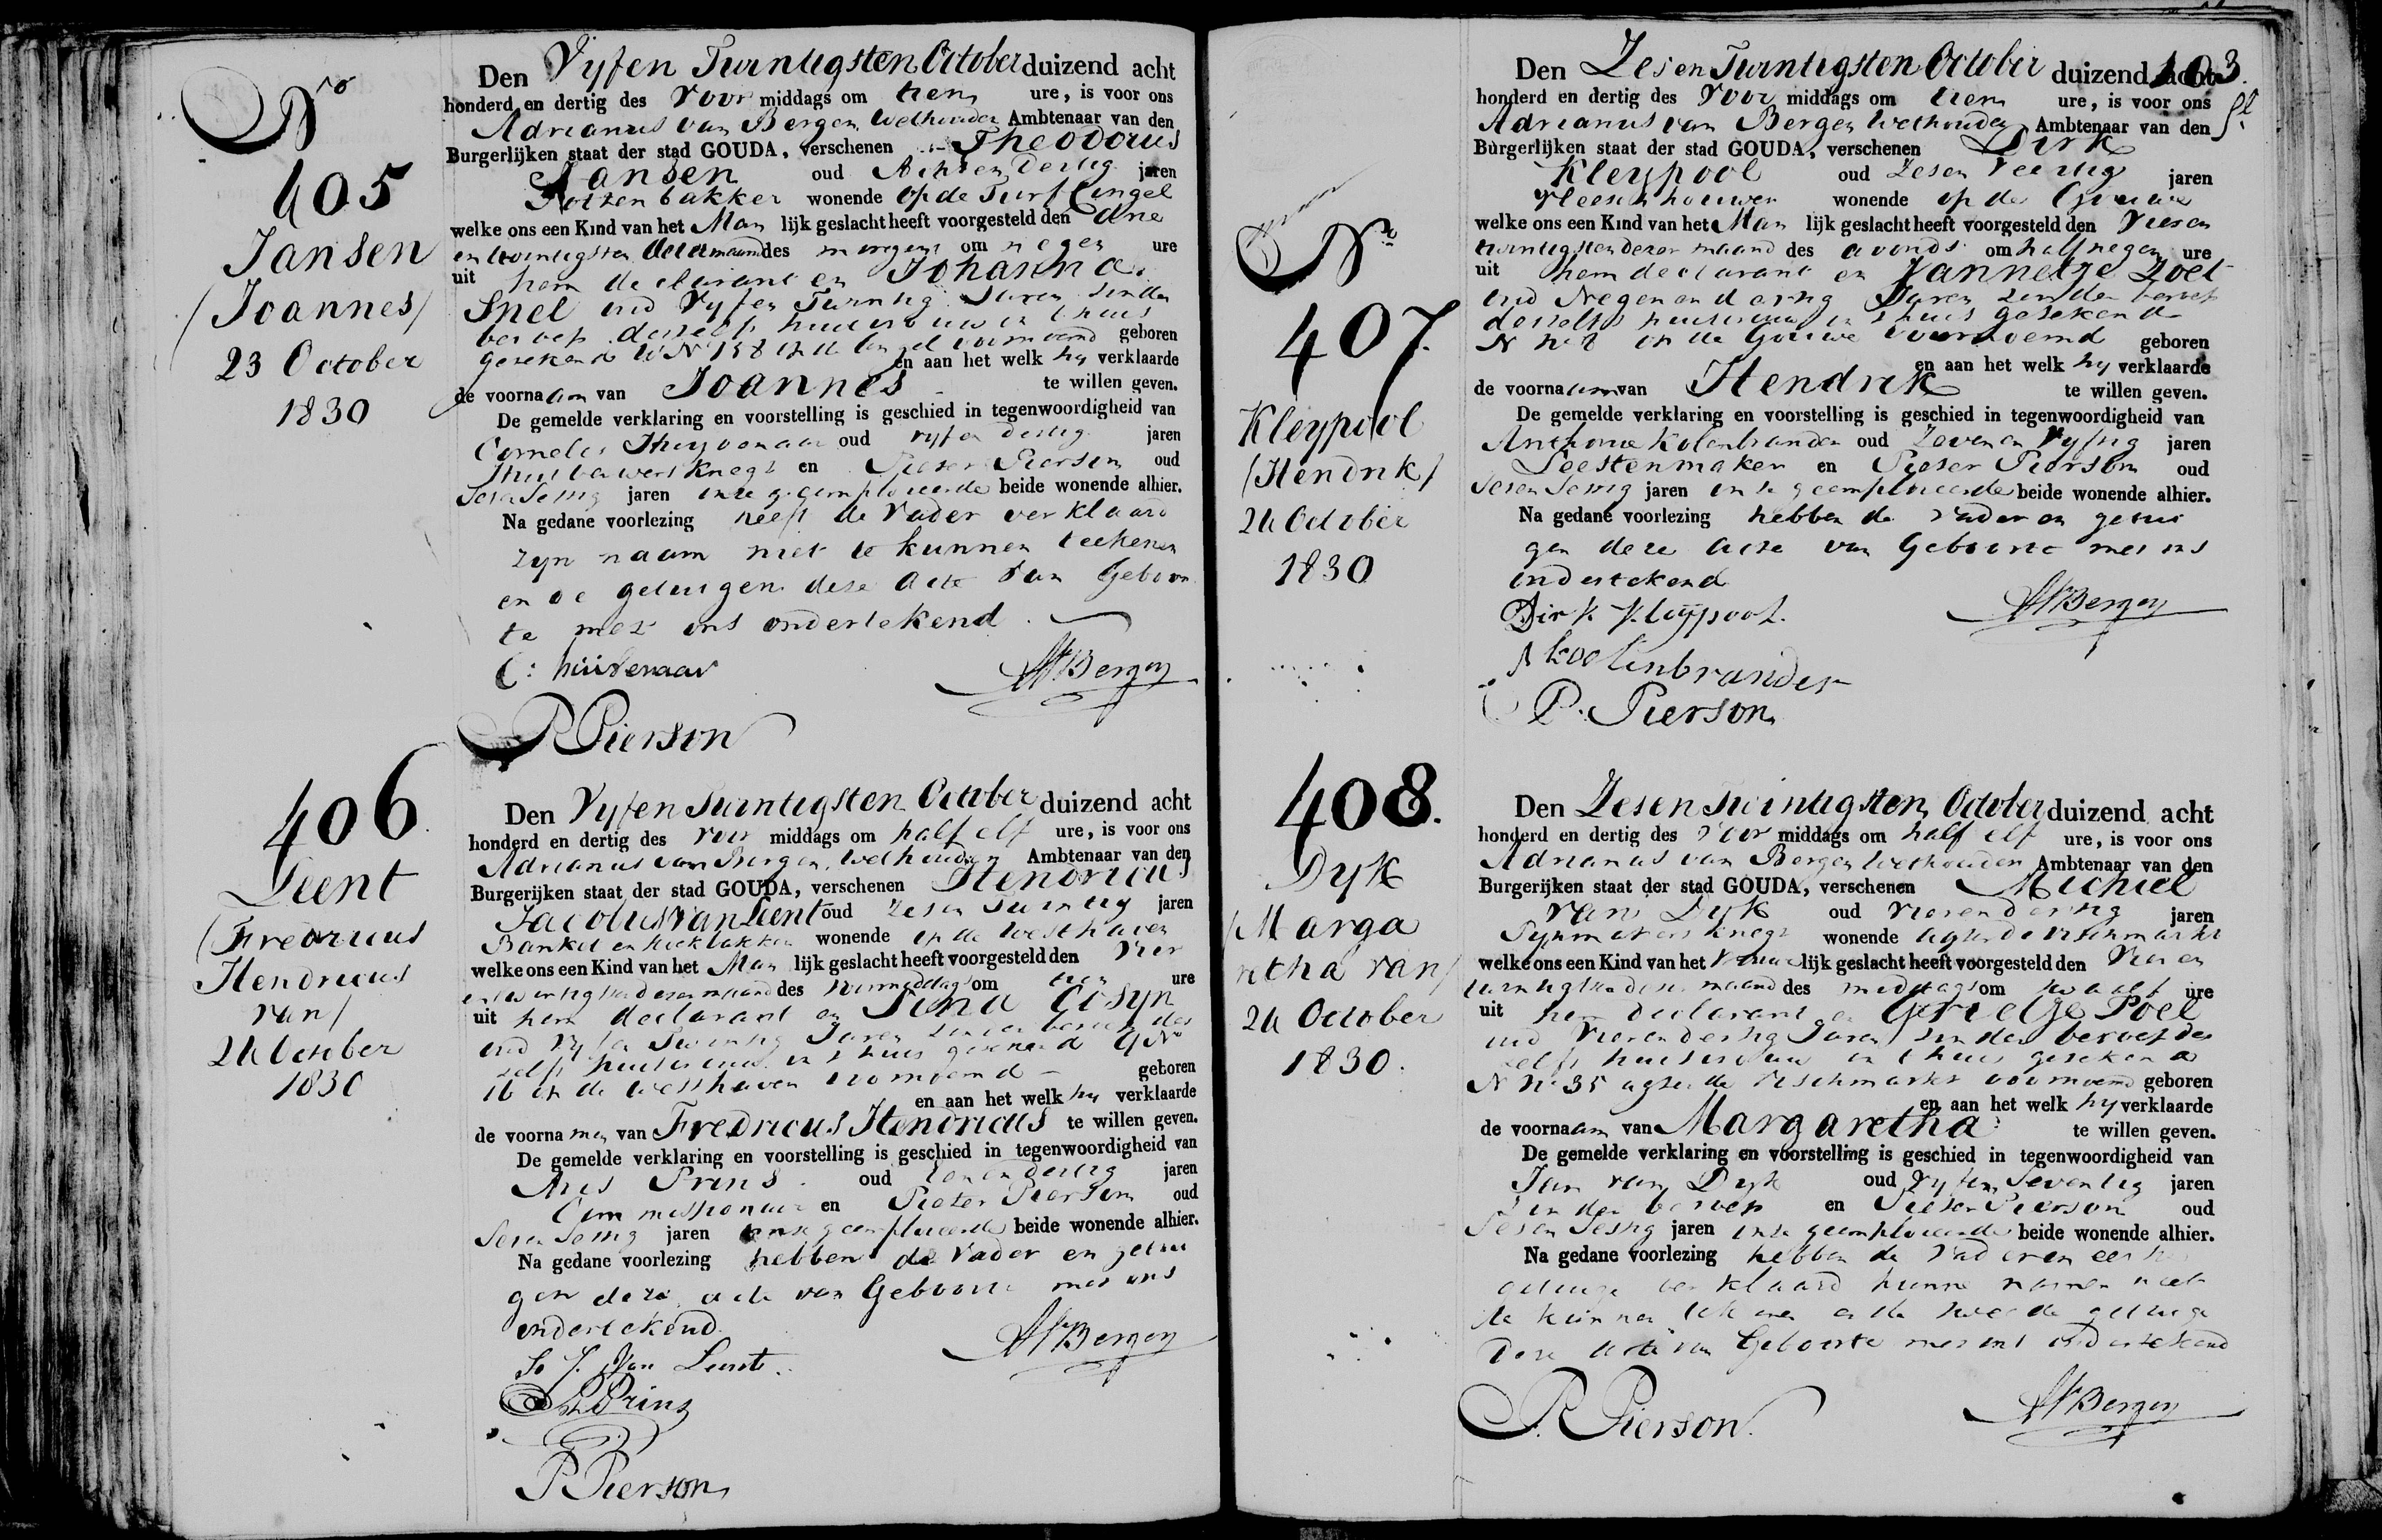 No
405
Jansen
(Joannes)
23 October
1830
Den Vyfen Twintigsten October duizend acht
honderd en dertig des Voor middags om tien ure, is voor ons
Adrianus van Bergen Wethouder Ambtenaar van den
Burgerlijken staat der stad GOUDA, verschenen Theodorus
Jansen oud Achtendertig jaren
Pottenbakker wonende op de Turfcingel
welke ons een Kind van het Man lijk geslacht heeft voorgesteld den drie
en twintigsten dezer maand des morgens om negen ure
uit hem declarant en Johanna
Snel oud Vyfen Twintig Jaren zonder
beroep desselfs huisvrouw in 't huis
getekend W No 158 op de Cingel voornoemd geboren
en aan het welk hy verklaarde
de voornaam van Joannes te willen geven.
De gemelde verklaring en voorstelling is geschied in tegenwoordigheid van
Cornelis oud vyfen dertig jaren
knegt en Pieter Pierson oud
Sesen Sestig jaren onze geemploieerde beide wonende alhier.
Na gedane voorlezing heeft de Vader verklaard
zyn naam niet te kunnen teekenen
en de getuigen deze acte van Geboor
te met ons ondertekend.
AvBergen
P Pierson
406
Leent
(Fredricus
Hendricus
van)
24 October
1830
Den Vyfen Twintigsten October duizend acht
honderd en dertig des voor middags om half elf ure, is voor ons
Adrianus van Bergen, Wethouder Ambtenaar van den
Burgerijken staat der stad GOUDA, verschenen Hendricus
Jacobus van Leent oud Zesen Twintig jaren
Banket en Koekbakker wonende op de Westhaven
welke ons een Kind van het Man lijk geslacht heeft voorgesteld den Vier
en twintigsten dezer maand des voormiddags om tien ure
uit hem declarant en
oud Vyfen Twintig Jaren zonder beroep des
zelfs huisvrouw in 't huis getekend No
16 op de Westhaven voornoemd geboren
en aan het welk hy verklaarde
de voorna men van Fredricus Hendricus te willen geven.
De gemelde verklaring en voorstelling is geschied in tegenwoordigheid van
Aris Prins oud dertig jaren
Commissionair en Pieter Pierson oud
Sesen Sestig jaren onze geemploieerde beide wonende alhier.
Na gedane voorlezing hebben de Vader en getui
gen deze acte van Geboorte met ons
ondertekend.
J. Van Leent.
AvBergen
A. Prins
P Pierson
103.
No
407.
Kleypool
(Hendrik)
24 October
1830
Den Zesen Twintigsten October duizend acht
honderd en dertig des Voor middags om tien ure, is voor ons
Adrianus van Bergen Wethouder Ambtenaar van den
Burgerlijken staat der stad GOUDA, verschenen Dirk
Kleypool oud Zesen Veertig jaren
vleeschhouwer wonende op de Gouwe
welke ons een Kind van het Man lijk geslacht heeft voorgesteld den Vieren
twintigsten dezer maand des avonds om half negen ure
uit hem declarant en Jannetje Zoet
oud Negenendertig Jaren zonder beroep
desselfs huisvrouw in 't huis getekend
N op de Gouwe voornoemd geboren
en aan het welk hy verklaarde
de voornaam van Hendrik te willen geven.
De gemelde verklaring en voorstelling is geschied in tegenwoordigheid van
Anthonie Kolenbrander oud Zevenen Vyftig jaren
Leestenmaker en Pieter Pierson oud
Sesen Sestig jaren onze geemploieerde beide wonende alhier.
Na gedane voorlezing hebben de Vader en getui
gen deze acte van Geboorte met ons
ondertekend
Dirk Kleypool.
AvBergen
A Koolenbrander
P. Pierson
408.
Dyk
(Marga
retha van)
24 October
1830.
Den Zesen Twintigsten October duizend acht
honderd en dertig des Voor middags om half elf ure, is voor ons
Adrianus van Bergen Wethouder Ambtenaar van den
Burgerijken staat der stad GOUDA, verschenen Michiel
van Dyk oud Vierendertig jaren
Pypmakers knegt wonende agter de Vischmarkt
welke ons een Kind van het Vrouwe lijk geslacht heeft voorgesteld den Vieren
twintigsten dezer maand des middags om twaalf ure
uit hem declarant en Grietje Poel
oud Vierendertig Jaren zonder beroep des
zelfs huisvrouw in 't huis getekend
N No 35 agter de Vischmarkt voornoemd geboren
en aan het welk hy verklaarde
de voornaam van Margaretha te willen geven.
De gemelde verklaring en voorstelling is geschied in tegenwoordigheid van
Jan van Dyk oud Vyfen Seventig jaren
zonder beroep en Pieter Pierson oud
Sesen Sestig jaren onze geemploieerde beide wonende alhier.
Na gedane voorlezing hebben de Vader en eerste
getuige verklaard hunne namen niet
te kunnen tekenen en de tweede getuige
deze acte van Geboorte met ons ondertekend
P. Pierson.
AvBergen